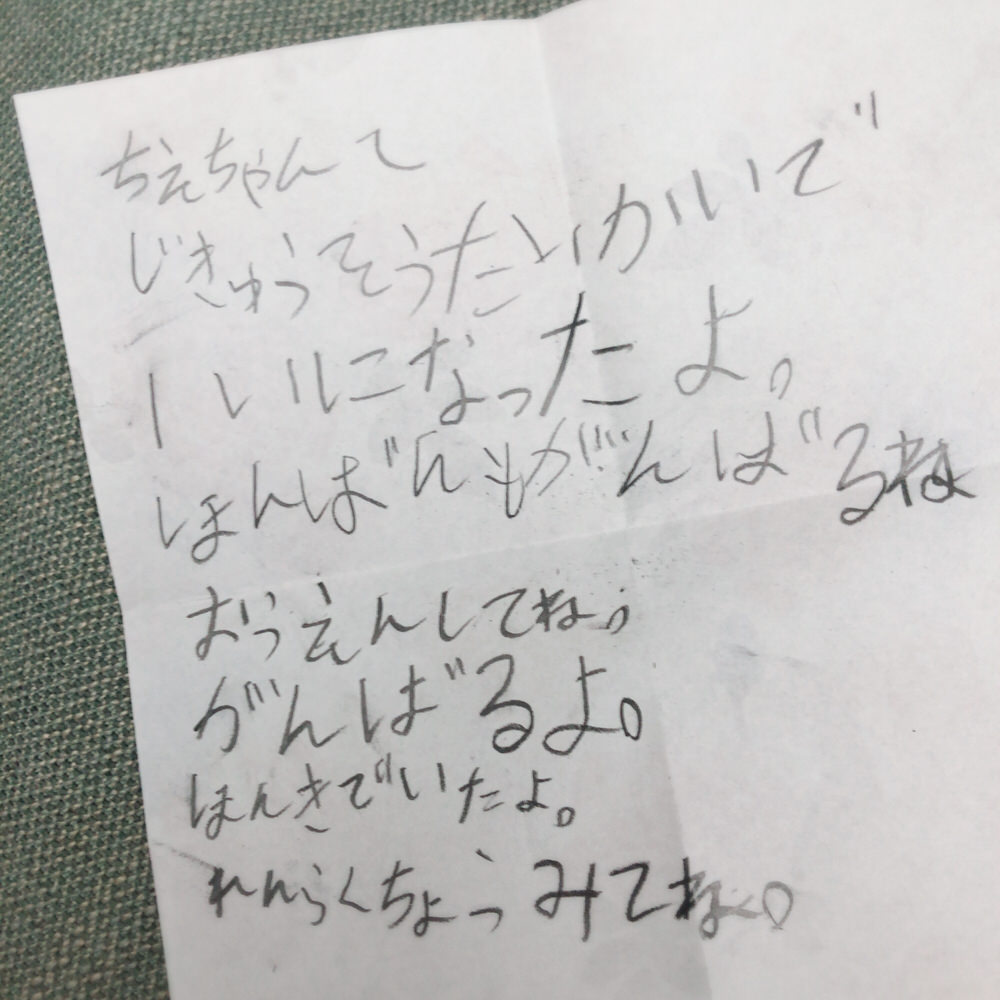 ちえちゃんて
じきゅうそうたいかいで
1いになったよ。
ほんばんもがんばるね
おうえんしてね。
がんばるよ。
ほんきでいたよ。
れんらくちょうみてね。